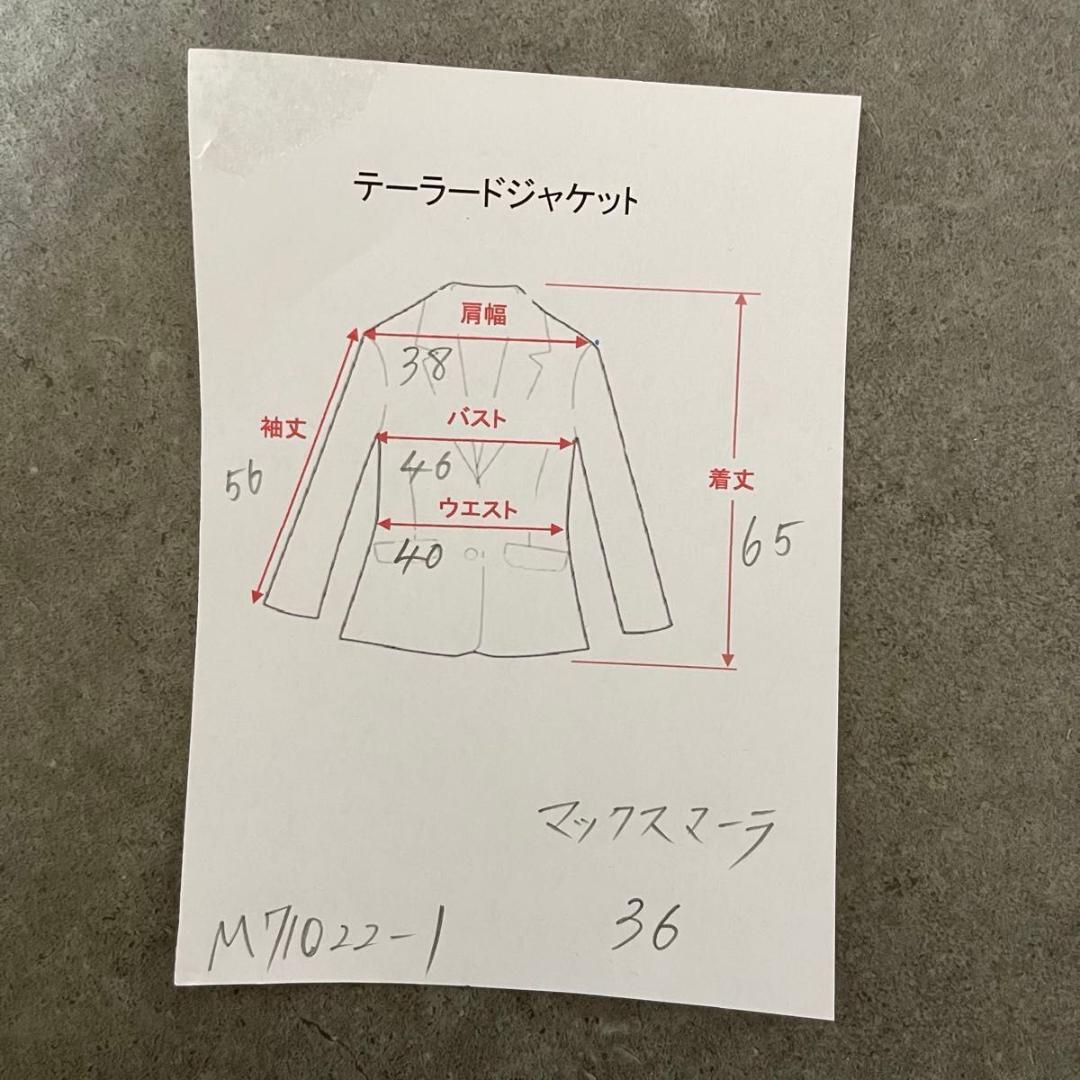 テーラードジャケット
肩幅
38
袖丈
56
バスト
46
ウエスト
40
着丈
65
マックスマーラ
36
M71022-1